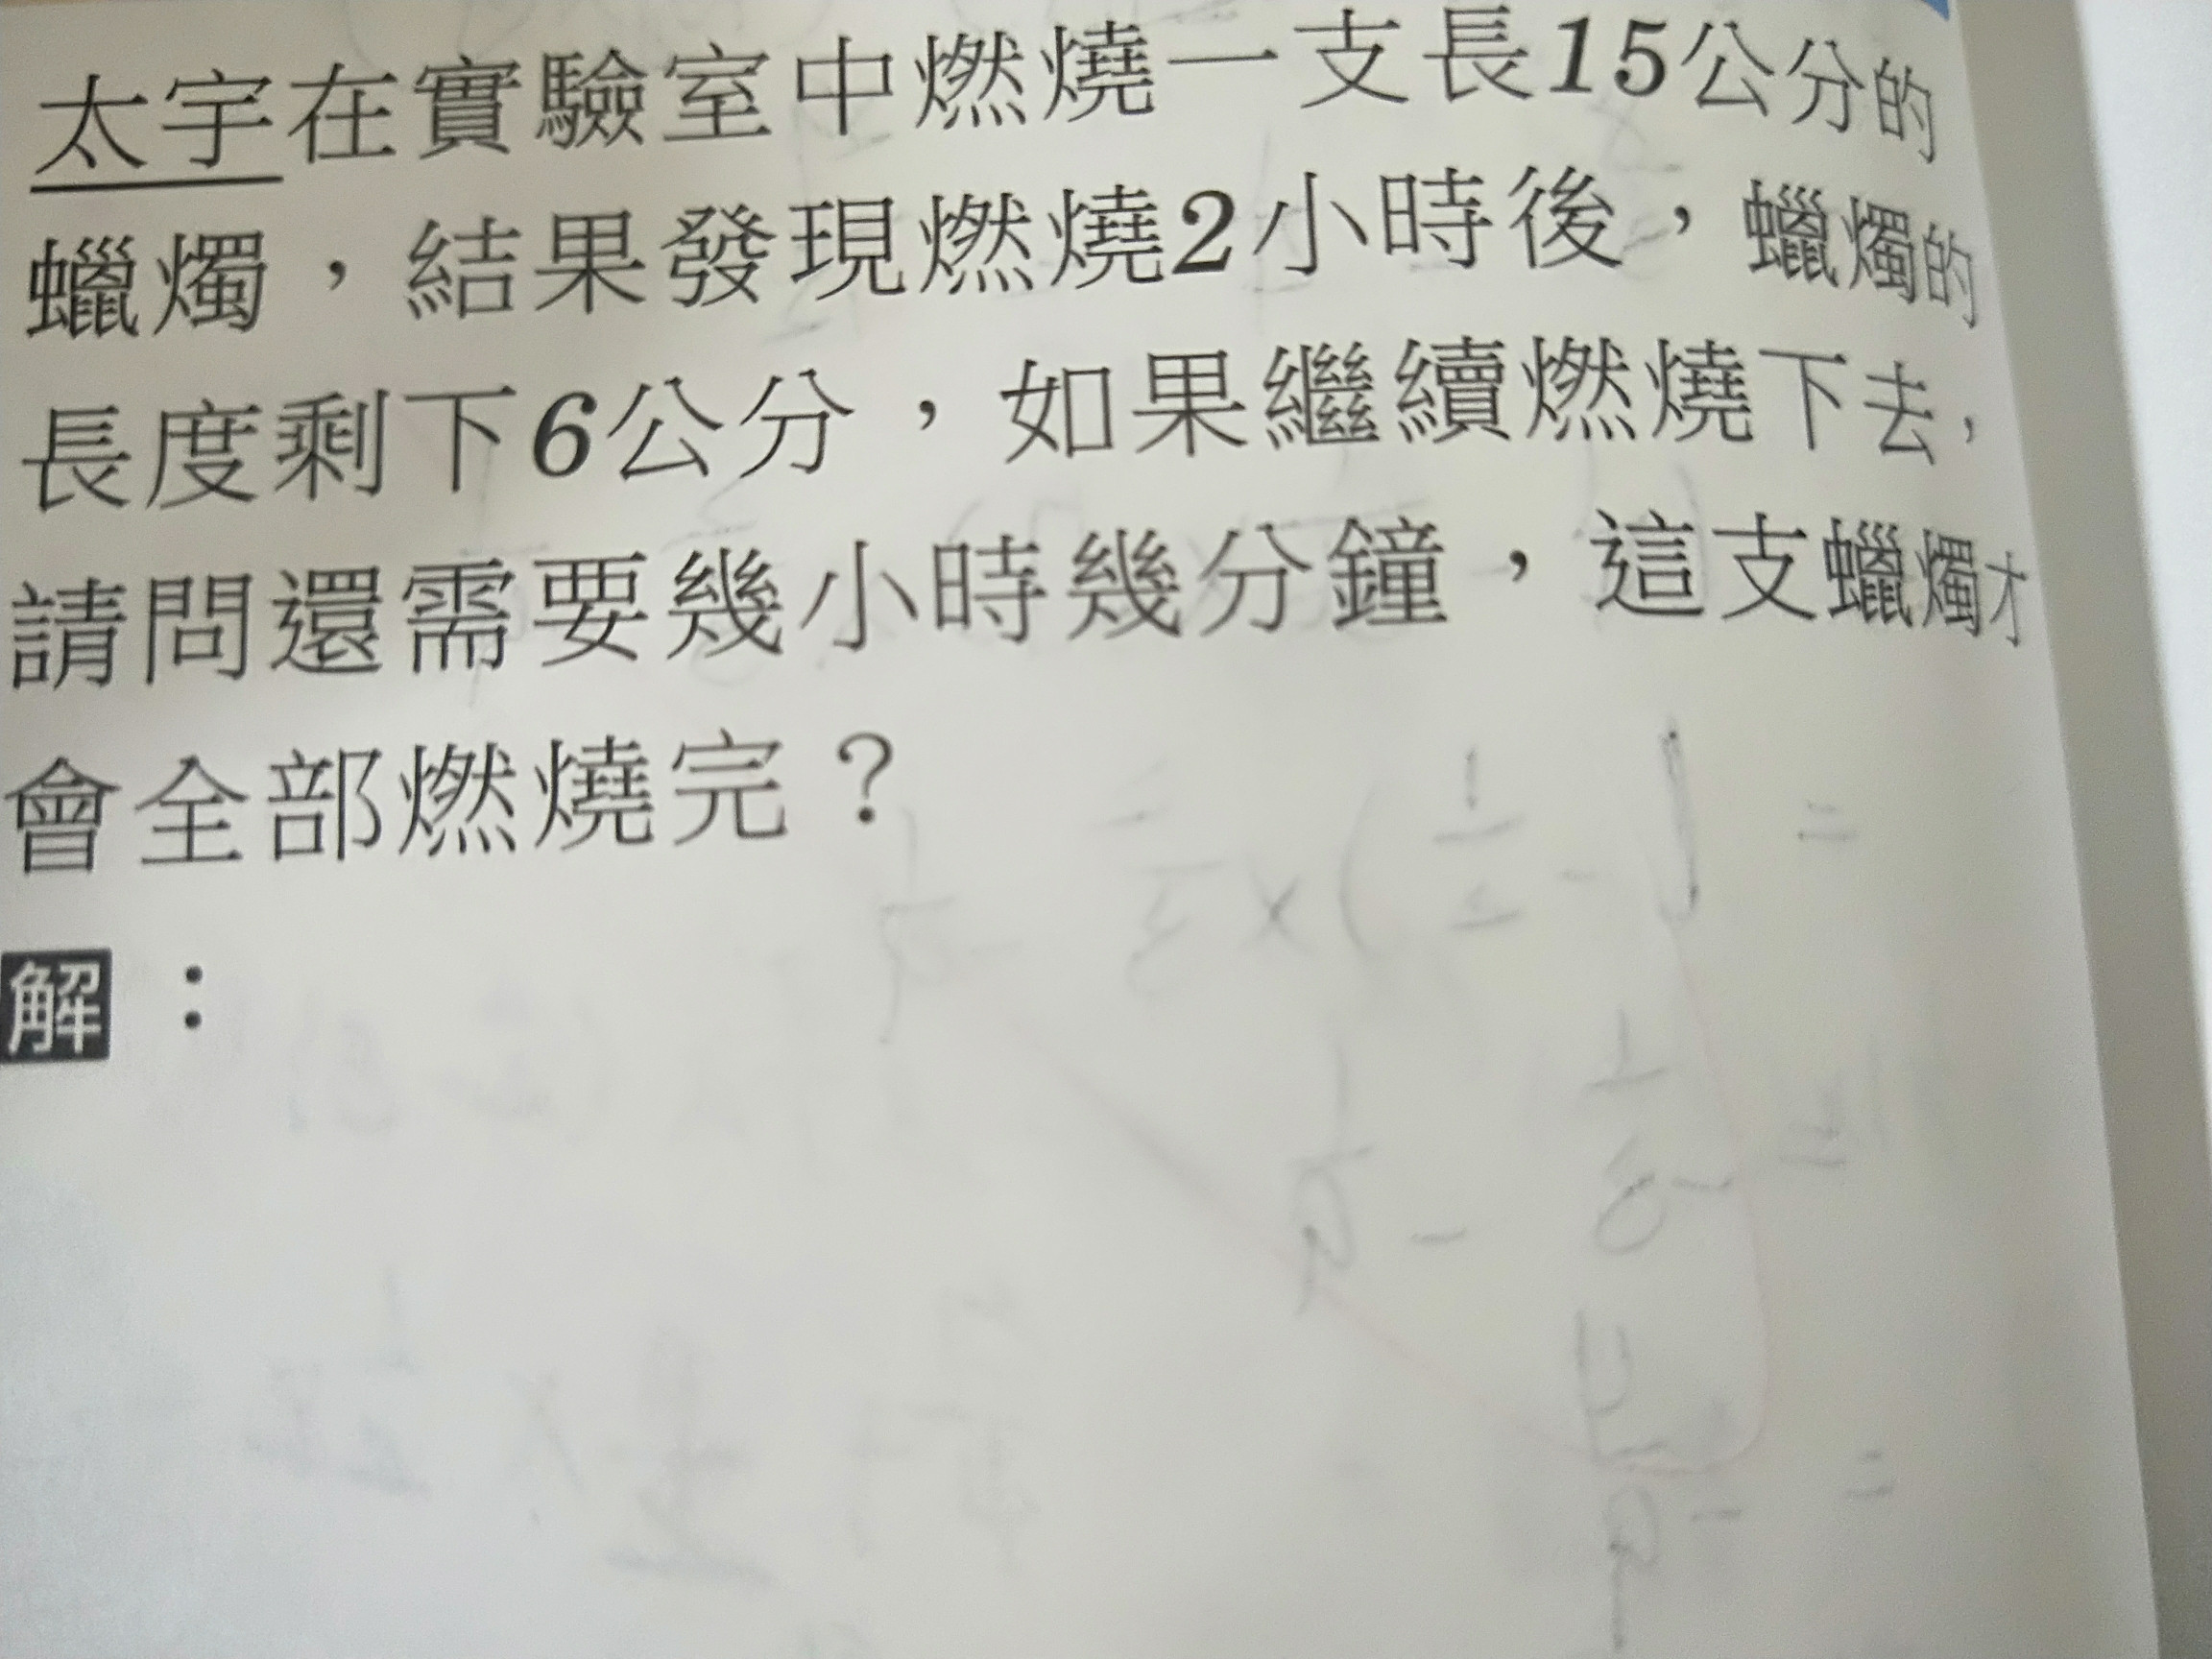 太宇在實驗室中燃燒一支長15公分的
蠟燭，結果發現燃燒2小時後，蠟燭的
長度剩下6公分，如果繼續燃燒下去，
請問還需要幾小時幾分鐘，這支蠟燭才
會全部燃燒完？
解：